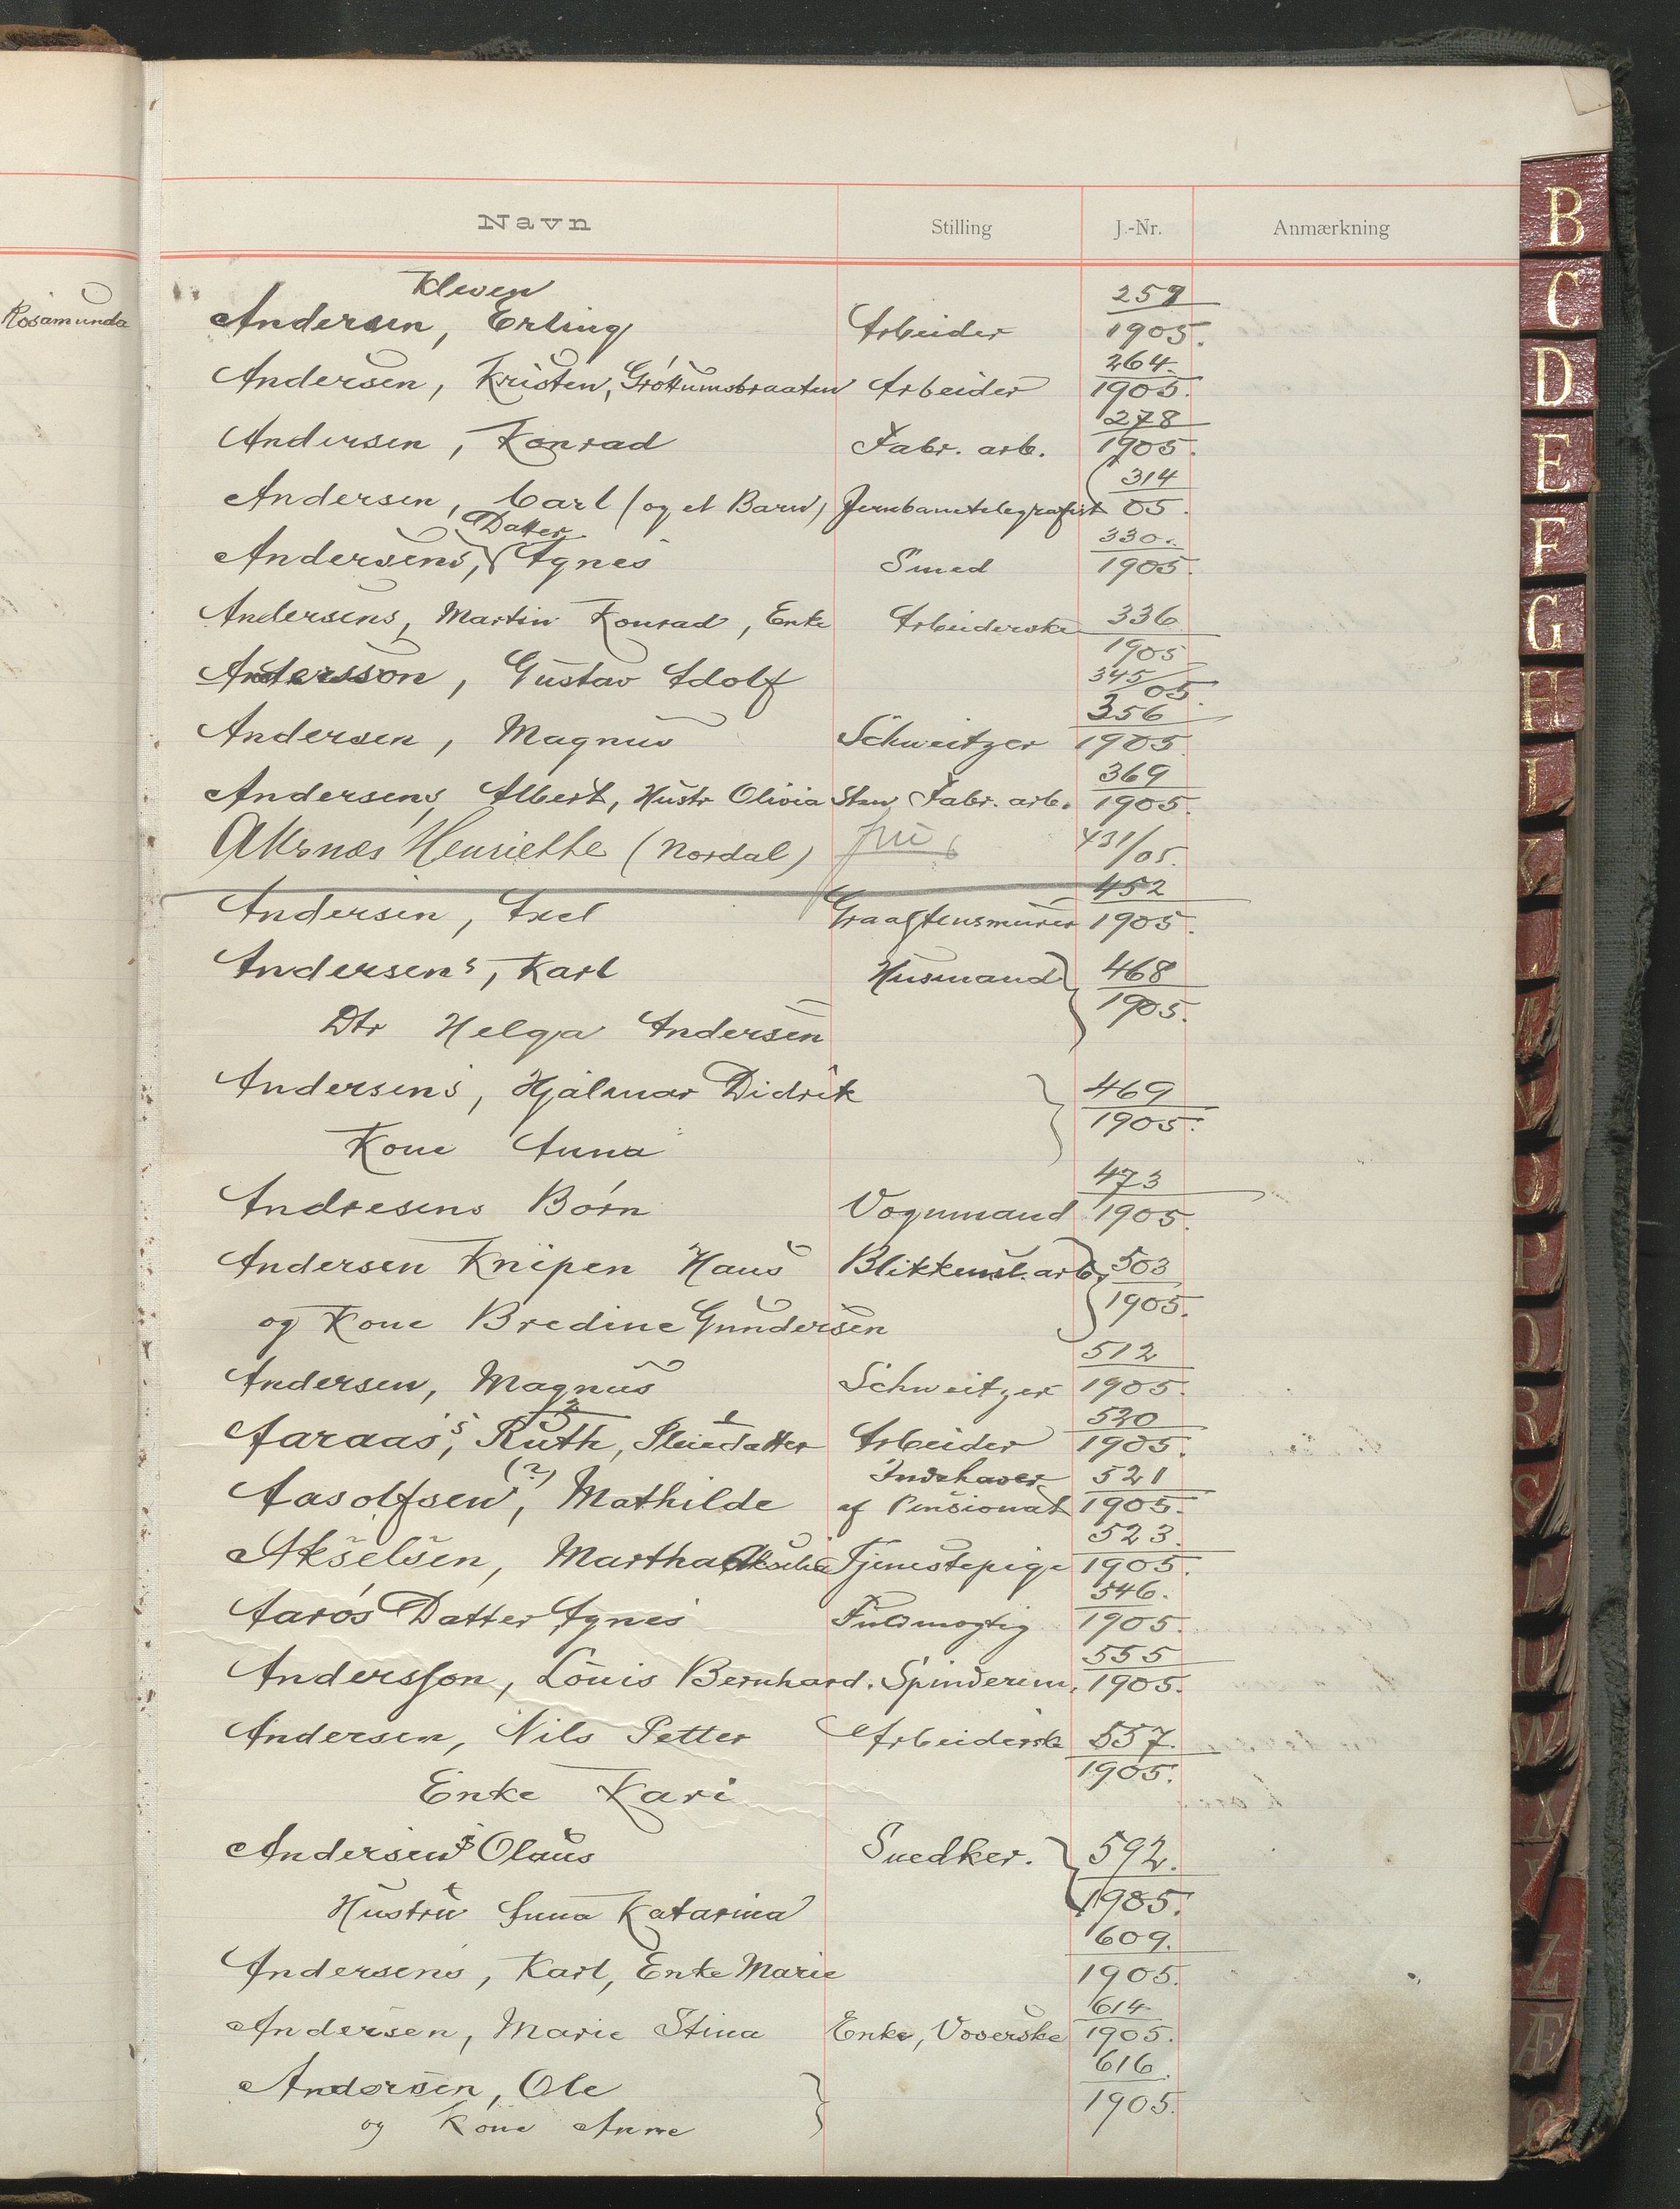 Rosamunda
Navn Stilling J.-Nr. Anmærkning
Kleven 259
Andersen, Erling Arbeider 1905.
264.
Andersen, Kristen, Gröttumsbraaten Arbeider 1905.
278
Andersen, Konrad Fabr. arb. 1905.
314
Andersen, Carl (og et Barn) Jernbanetelegrafist 05.
Datter 330.
Andersens, Agnes Smed 1905.
Andersens, Martin Konrad, Enke Arbeiderske 336
1905
Andersson, Gustav Adolf 345/05.
356
Andersen, Magnus Schweitzer 1905.
369
Andersens, Albert, Hustr Olivia Fabr. arb. 1905.
Aksnæs Henriette (Nordal) fru 431/05.
452
Andersen, Axel Graastensmurer 1905.
Andersens, Karl Husmand 468
1905.
Dtr Helga Andersen
Andersens, Hjalmar Didrik 469
1905.
Kone Anna
473
Andresens Börn Vognmand 1905.
Andersen Knipen Hans Blikkensl. arb. 503
1905.
og Kone Bredine Gundersen
512
Andersen, Magnus Schweitzer 1905.
2 1 520
Aaraas's, Ruth, Pleiedatter Arbeider 1905.
(?) Indehaver 521
Aasolfsen, Mathilde af Pensionat 1905.
523.
Akselsen, Martha Tjenestepige 1905.
546.
Aarös Datter Agnes Fuldmægtig 1905.
555
Andersson, Louis Bernhard. Spinderim. 1905.
Andersen, Nils Petter Arbeiderske 557.
1905.
Enke Kari
Andersens Olaus Snedker. 592.
1905.
Hustru Anna Katarina
609.
Andersens, Karl, Enke Marie 1905.
614
Andersen, Marie Stina Enke, Væverske 1905.
616.
Andersen, Ole 1905.
og Kone Anne
B
C
D
E
F
G
H
I
K
L
M
N
O
P
Q
R
S
T
U
V
W
X
Y
Z
Æ
Ø